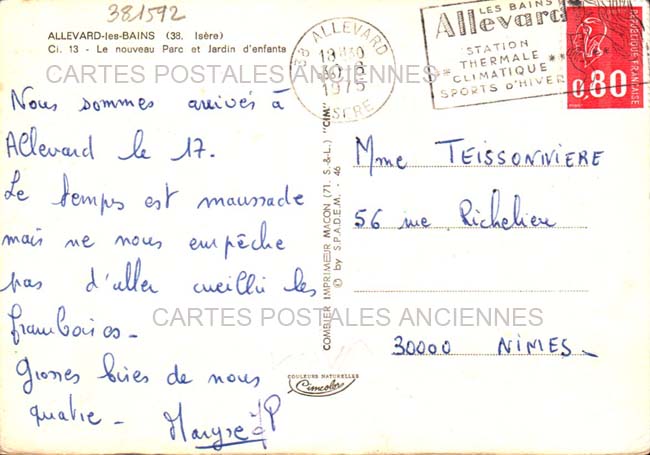 381592
ALLEVARD-les-BAINS (38. Isère)
Ci. 13 - Le nouveau Parc et Jardin d'enfants
CARTES POSTALES ANCIENNES
Nous sommes arrivés à
Allevard le 17.
Le temps est maussade
mais ne nous empêche
pas d'aller cueillir les
framboises -
Grosses bises de nous
quatre - Maryse JP
38 ALLEVARD
18H30
1975
ISERE
LES BAINS
Allevard
STATION
THERMALE
CLIMATIQUE
SPORTS d'HIVER
REPUBLIQUE FRANÇAISE
0,80
COMBIER IMPRIMEUR MACON (71. S.-&-L.) "CIM"
© by S.P.A.D.E.M. - 46
Mme TEISSONNIERE
56 rue Richelieu
30000 NIMES -
CARTES POSTALES ANCIENNES
COULEURS NATURELLES
Cimcolor